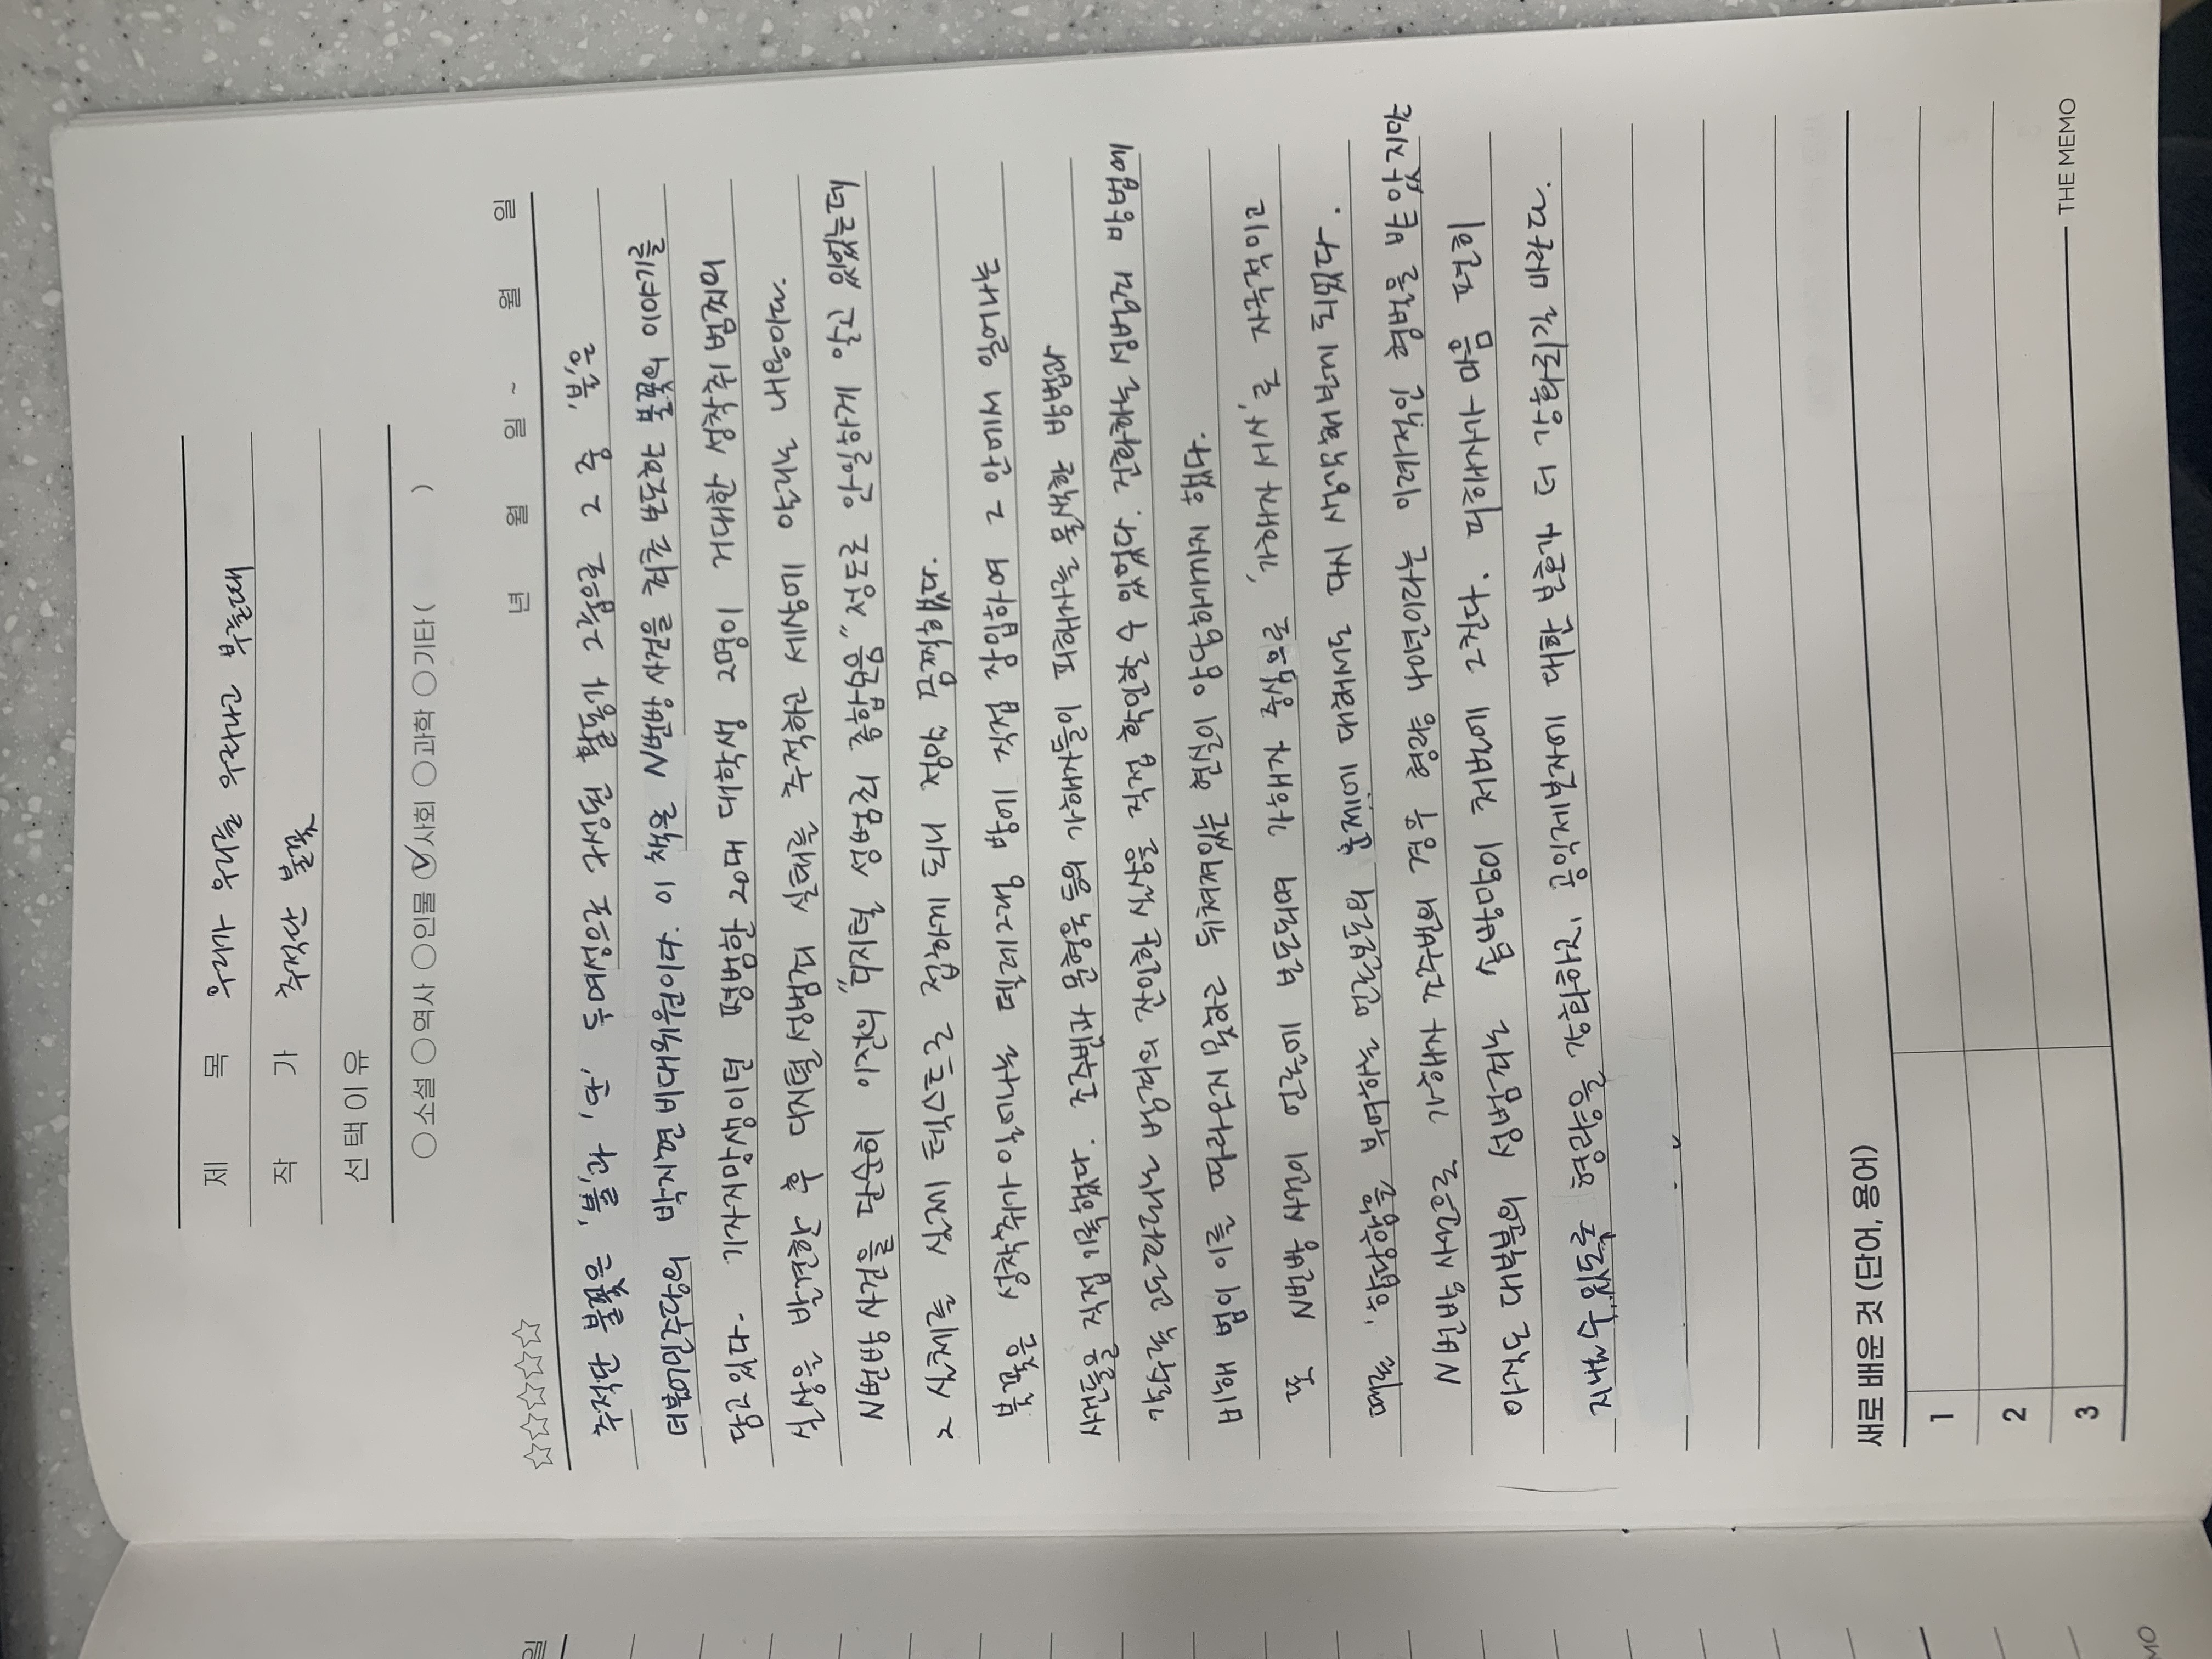 제 목 우리가 우리를 우리라고 부를때
작 가 추적단 불꽃
선택이유
소설 역사 인물 사회 과학 기타 ( )
년 월 일 ~ 월 일
일
추적단 불꽃은 '불'과 '단' 두 여성으로 구성된 활동가 그룹으로 그 중 '불'은
더불어민주당의 박지현 비대위원이다. 이 책은 N번방 사건을 최초 보도한 불꽃의 이야기를
담고 있다. 기자지망생이던 평범한 20대 대학생 2명이 거대한 성착취 범죄의
실상을 발견한 후 디지털 성범죄 실태를 추적하고 세상에 알리는 내용이다.
N번방 사건을 단순히 이전의 "디지털 성범죄 종합모음" 정도로 안일하게 알고 있었는데
그 실체를 실제 텍스트로 접하게 되니 정말 끔찍했다.
불꽃은 성착취가 일어나는 텔레그램 방에 직접 잠입하여 그 안에서 일어나는
사건들을 직접 기록했다. 조주빈과 문형욱 등의 가해자들이 피해자를 물색한 방법과
갈수록 고도화되는 범죄의 잔인한 실상을 직접 확인할 수 있었다. 진화하는 성범죄 방법에
비해 법이 이를 따라오지 못하고 뒤쳐져있는 현실이 암담하기까지 했다.
또 N번방 사건이 언론에 보도되며 가해자 중심으로 '가해자 서사'로 자극적이고
때론 '합당함'을 부여하는 언론보도의 문제에 대해서도 다시 생각해보게 되었다.
N번방 사건으로 가해자 조주빈의 경우 형량 40년이라는 이례적인 형벌을 받았지만
아직도 대부분의 성범죄는 솜방망이 처벌에 그친다. 피해자가 마음 편히
지낼 수 있도록 형량을 강화하고, 공익제보자에 대한 보호가 더 강화되길 바란다.
새로 배운 것 (단어, 용어)
1
2
3
THE MEMO
MO